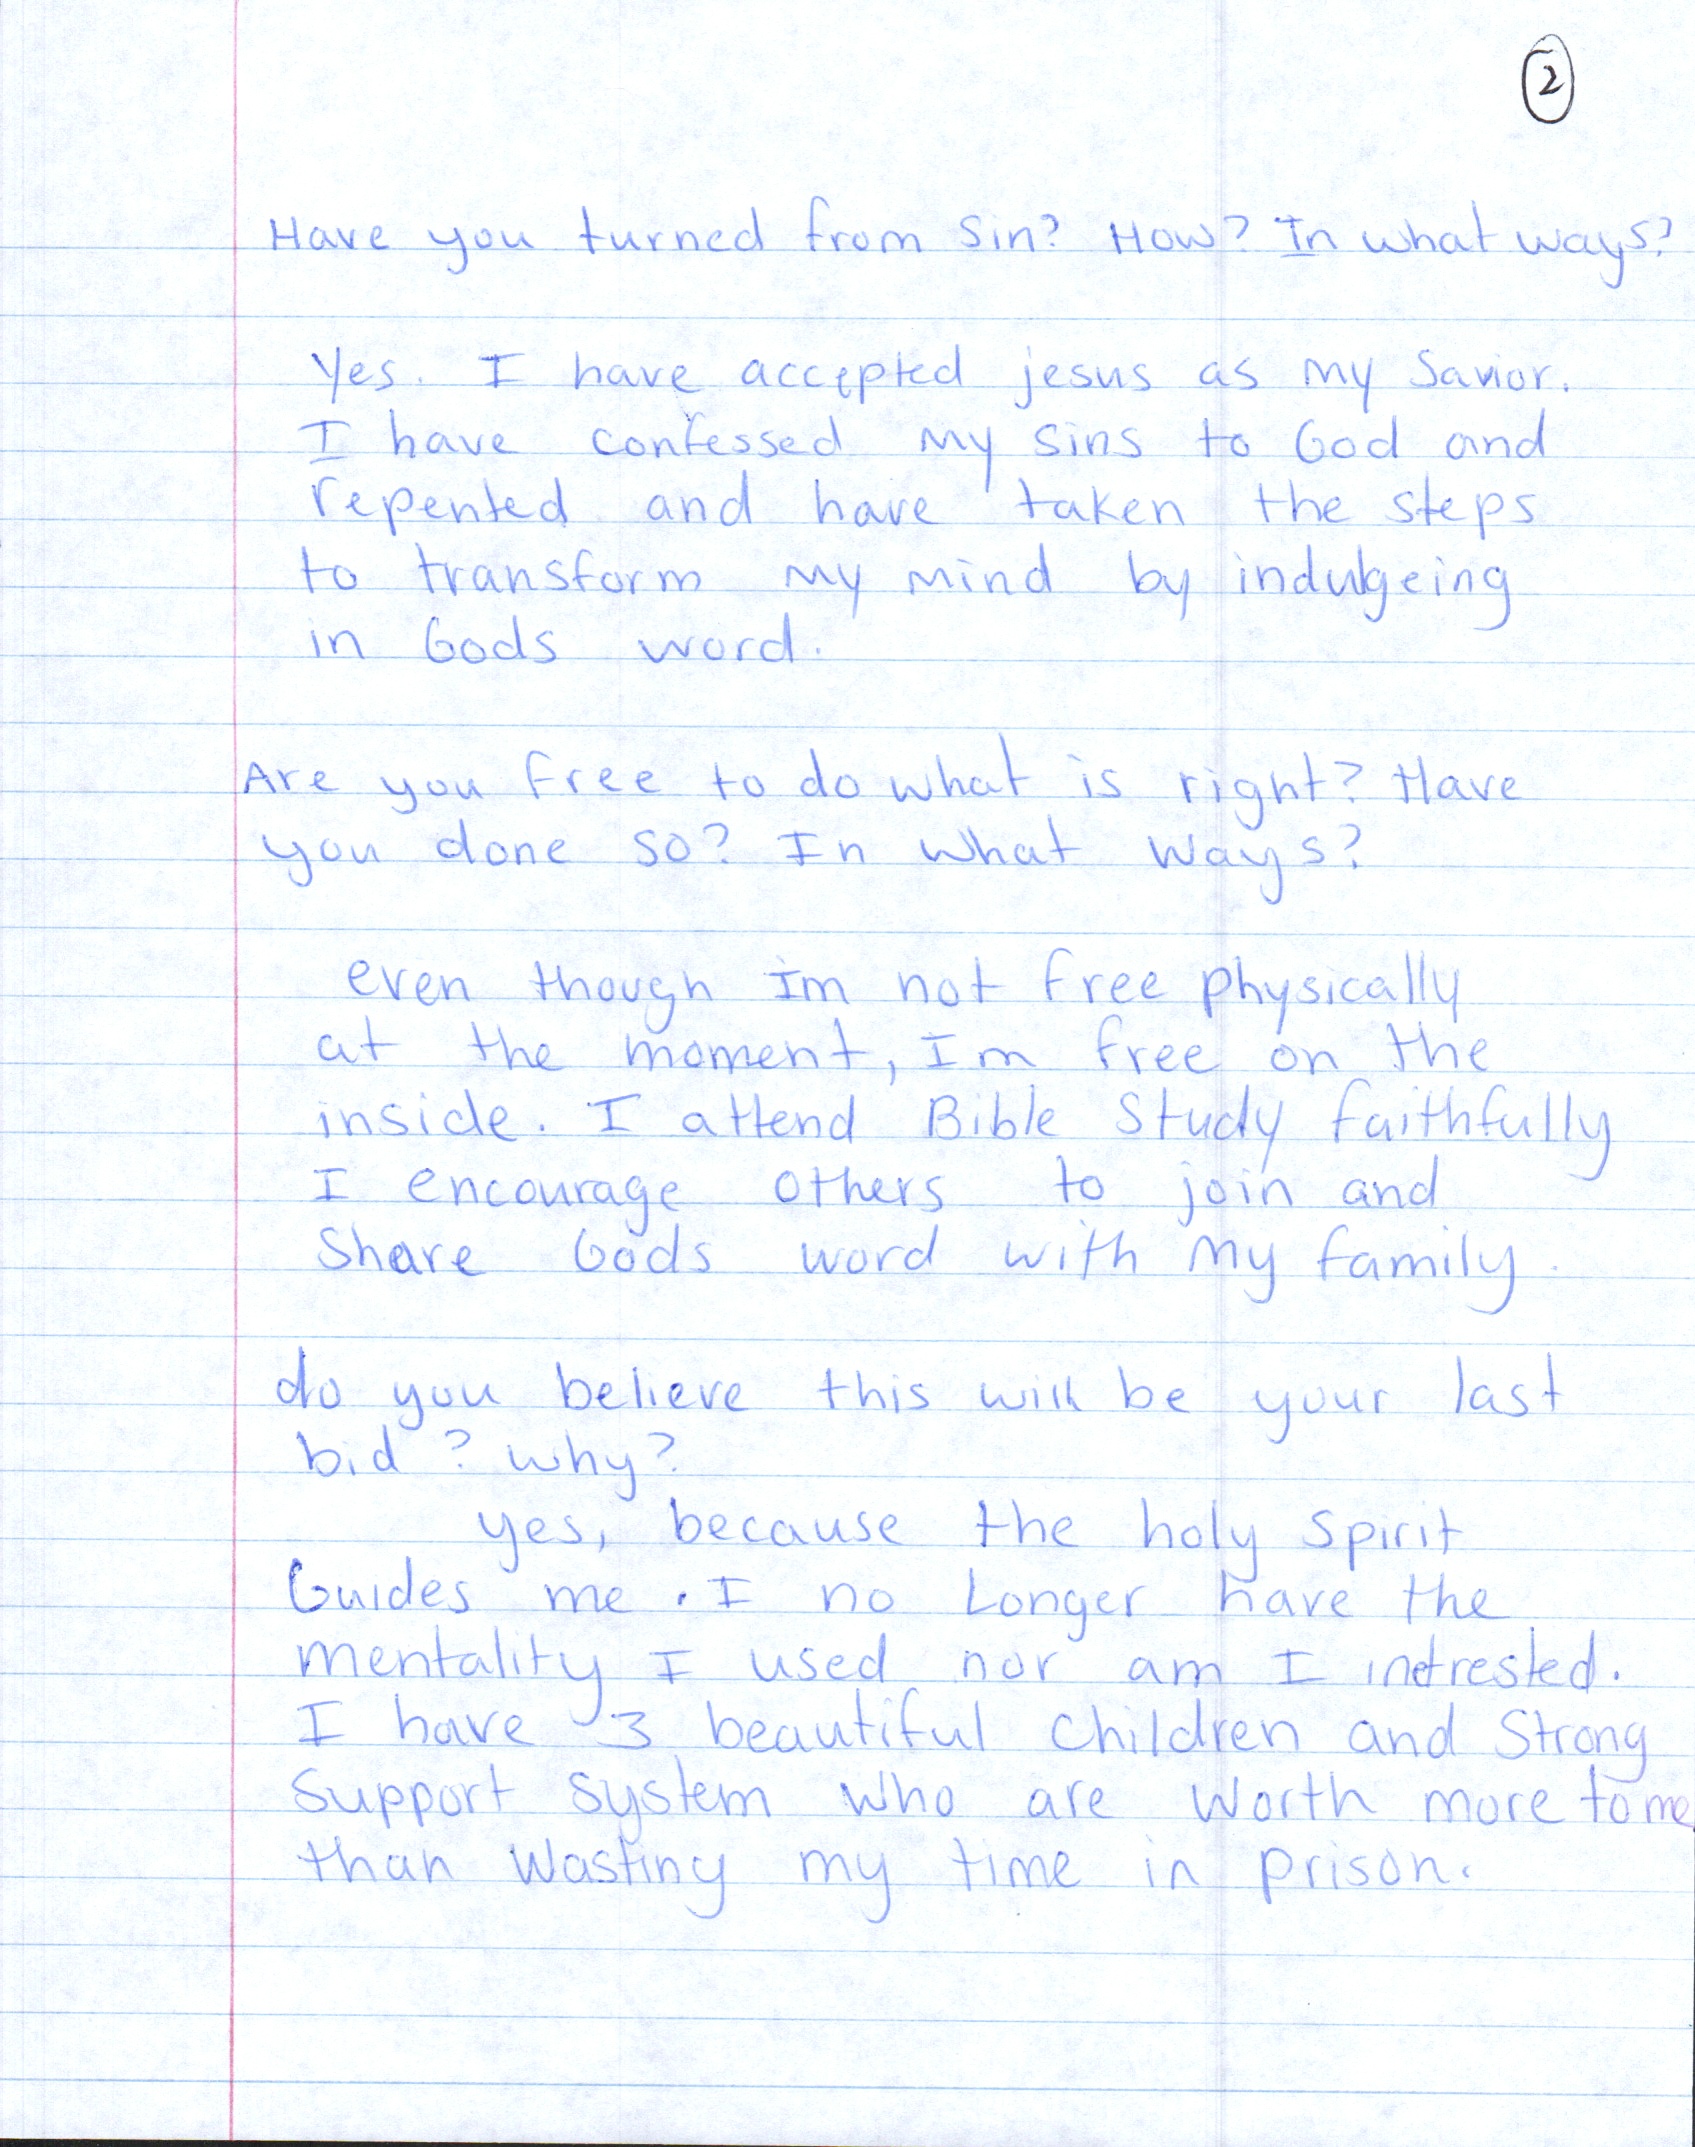 2
Have you turned from sin? How? In what ways?
Yes. I have accepted jesus as my Savior.
I have confessed my sins to God and
repented and have taken the steps
to transform my mind by indulgeing
in Gods word.
Are you free to do what is right? Have
you done so? In what ways?
even though im not free physically
at the moment, Im free on the
inside. I attend Bible Study faithfully
I encourage others to join and
Share Gods word with my family.
do you believe this will be your last
bid? why?
yes, because the holy spirit
Guides me. I no Longer have the
mentality I used nor am I intrested.
I have 3 beautiful children and Strong
Support system who are worth more to me
than wasting my time in prison.